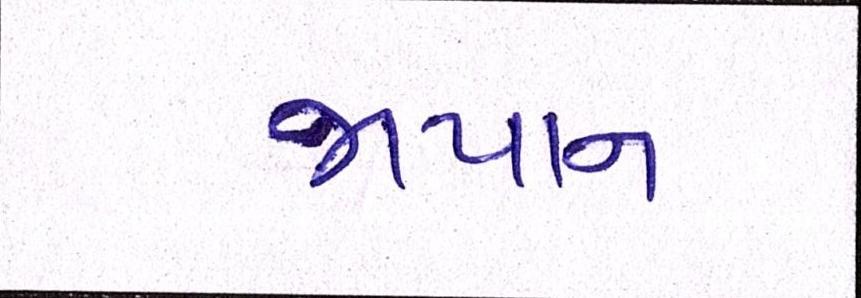 જાપાન